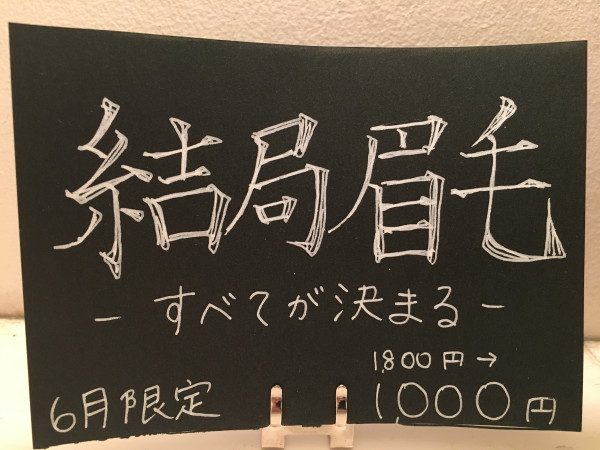 結局眉毛
- すべてが決まる -
1,800円→
6月限定
1,000円